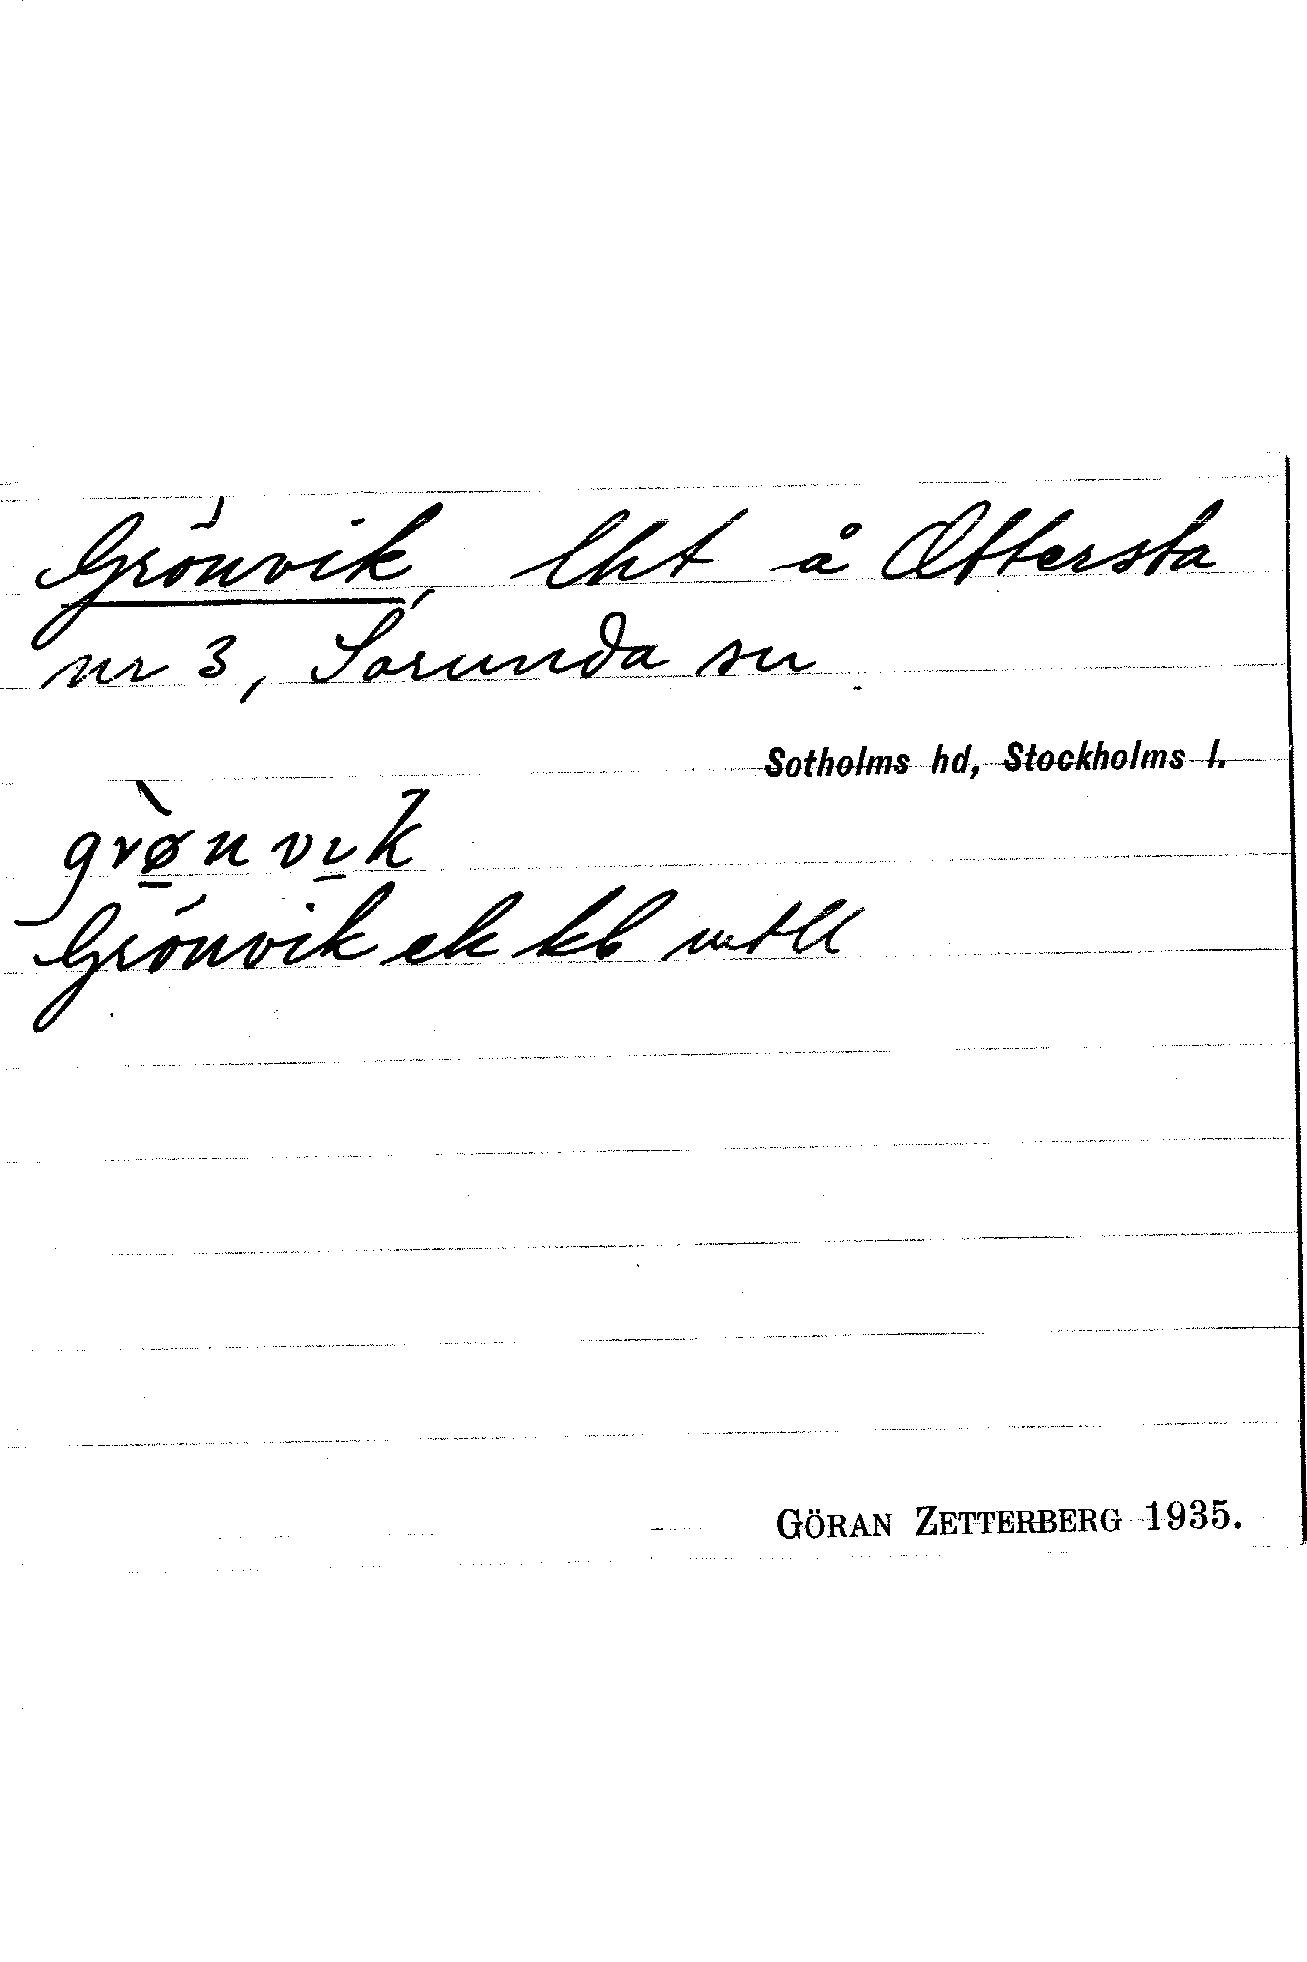 Grönvik, lht å Ottersta
nr 3, Sorunda sn
Sotholms hd, Stockholms l.
grø̀nvik
Grönvik ek kb mtll
GÖRAN ZETTERBERG 1935.